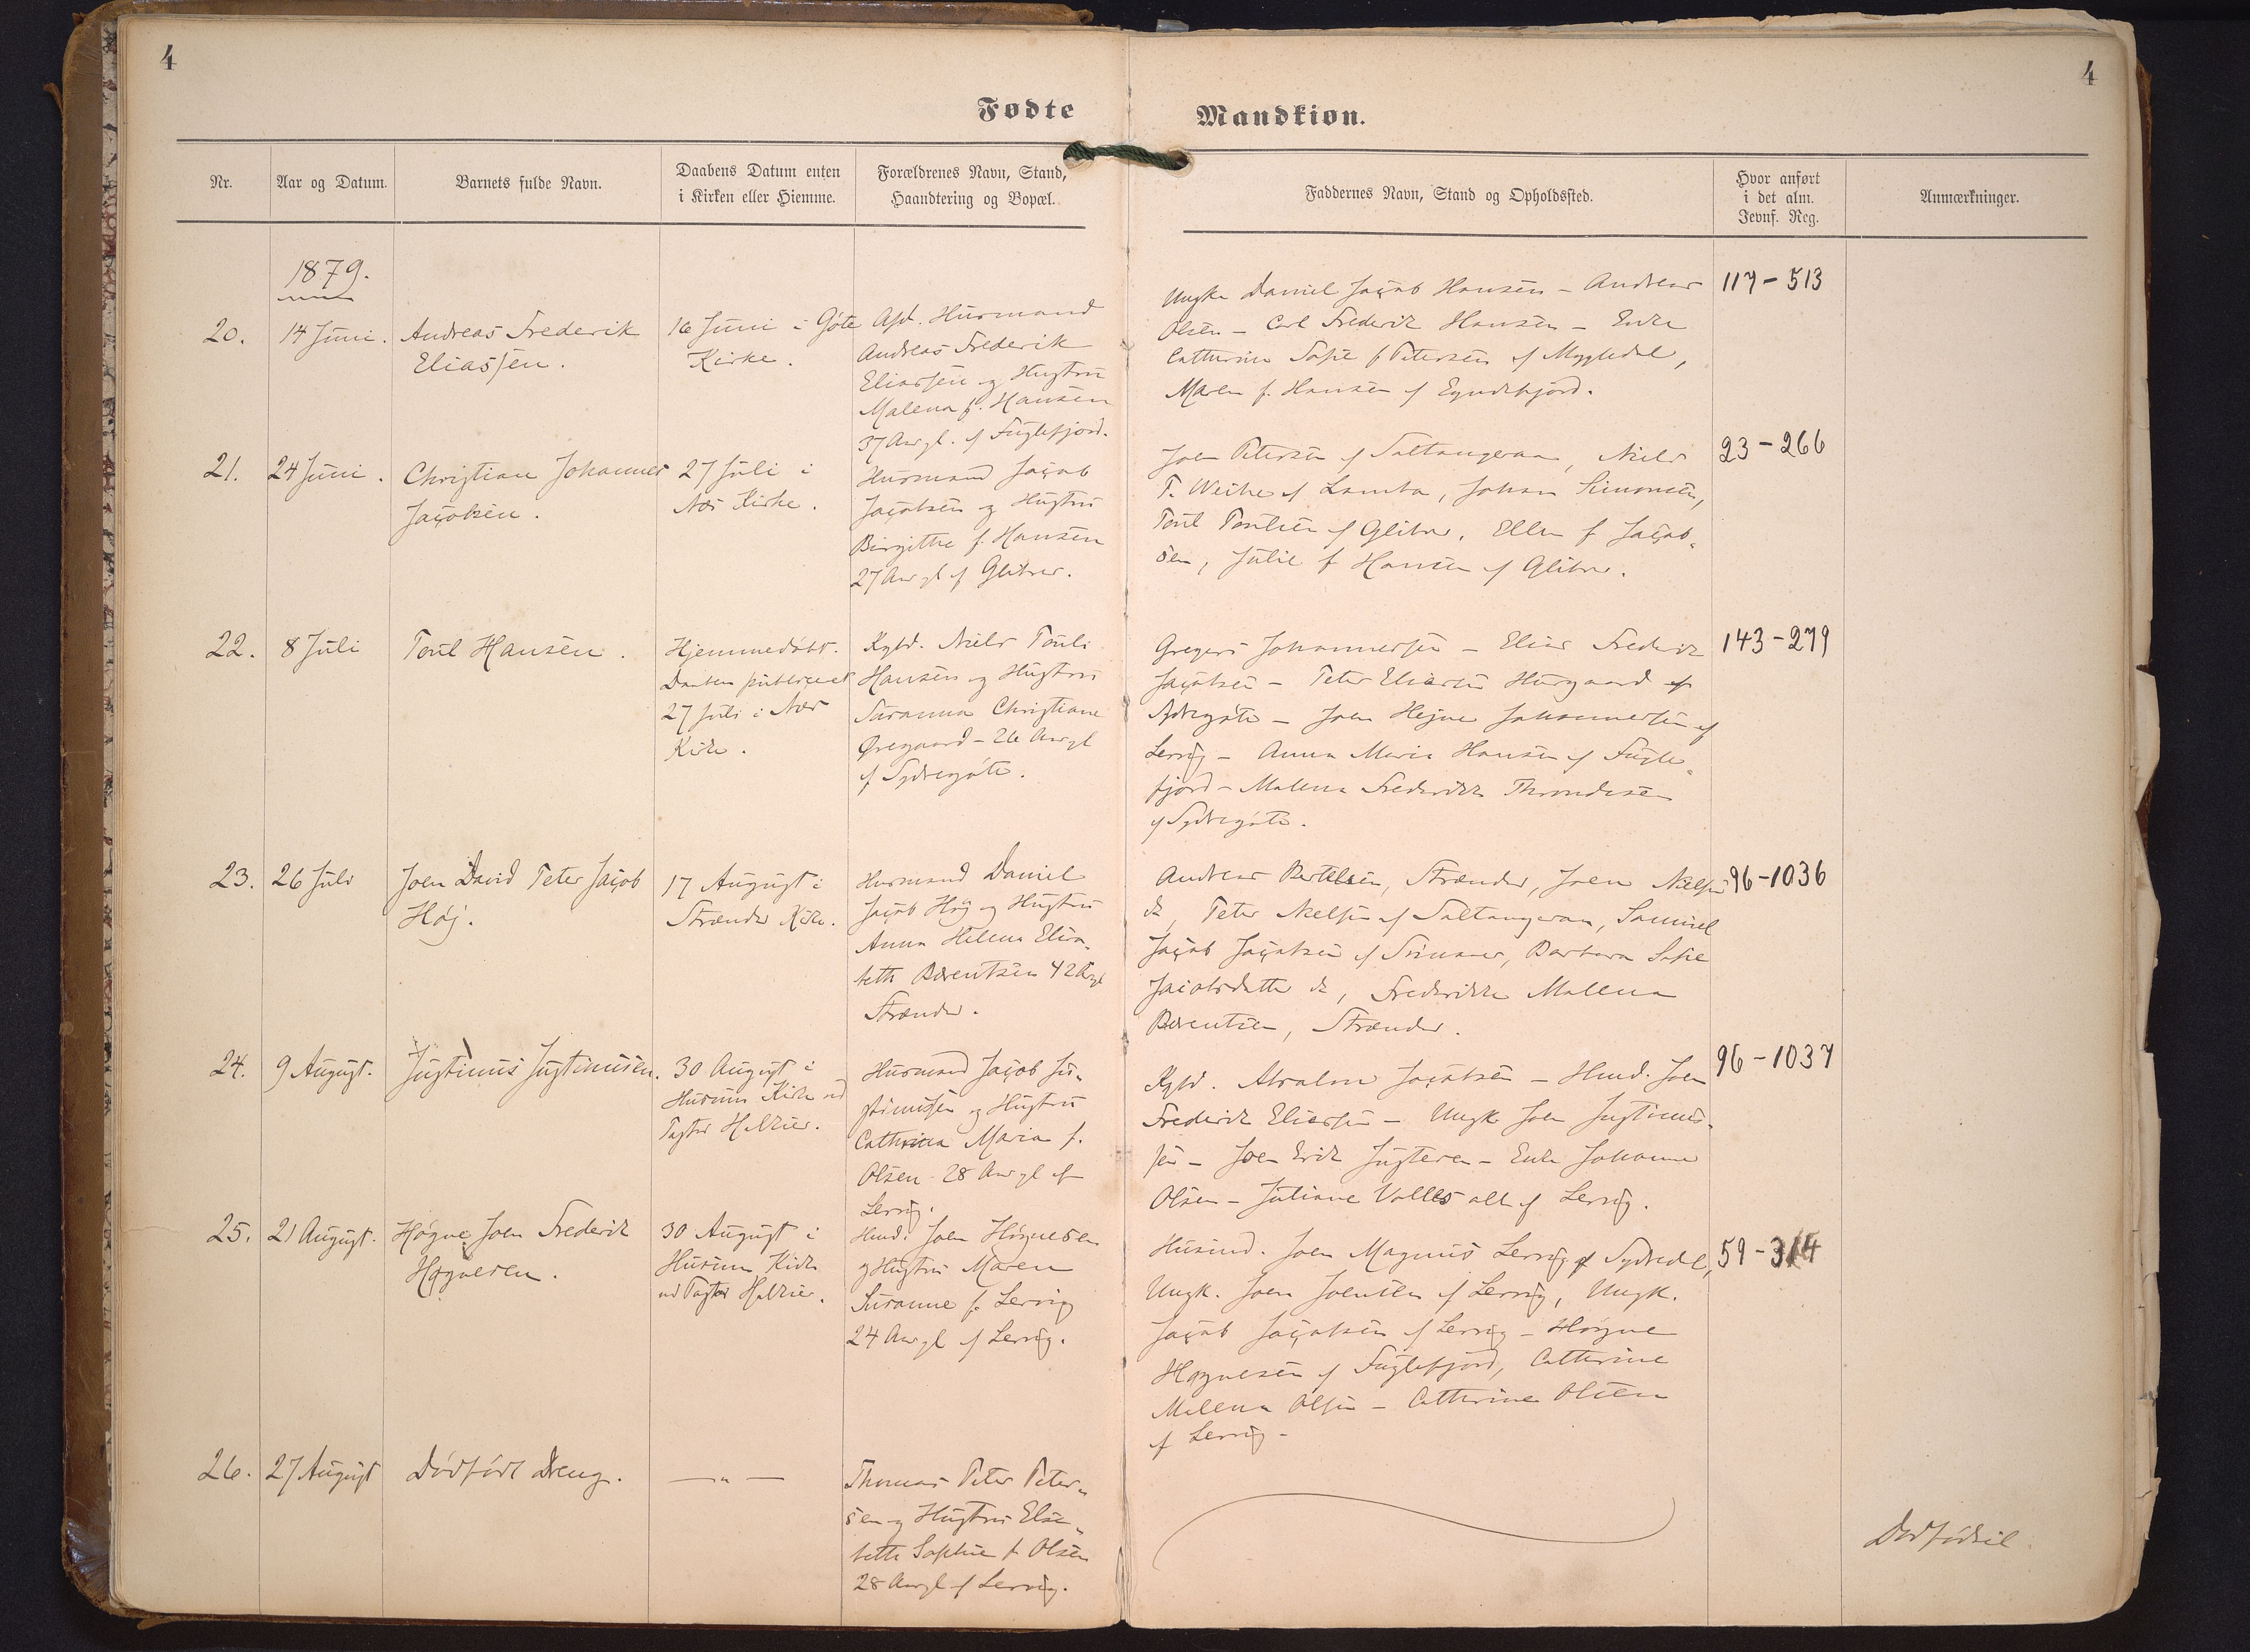 4
4
Fødte
Mandkiøn.
Nr.
Aar og Datum.
Barnets fulde Navn.
Daabens Datum enten
i Kirken eller Hiemme.
Forældrenes Navn, Stand,
Haandtering og Bopæl.
Faddernes Navn, Stand og Opholdssted.
Hvor anført
i det alm.
Jevnf. Reg.
Anmærkninger.
1879.
20.
14 Juni.
Andreas Frederik
Eliassen.
16 Juni i Gøte
Kirke.
Afd. Husmand
Andreas Frederik
Eliassen og Hustru
Malena f. Hansen
37 Aar gl. af Fuglefjord.
Ungk. Daniel Jacob Hansen - Andreas
Olsen - Carl Frederik Hansen - Enke
Cathrine Sofie f Petersen af Mygledal,
Maren f. Hansen af Eyndefjord.
117-513
21.
24 Juni.
Christian Johannes
Jacobsen.
27 Juli i
Næs Kirke.
Husmand Jacob
Jacobsen og Hustru
Birgithe f. Hansen
27 Aar gl af Glibrer.
Joen Petersen af Saltangeraa, Niels
T. Weihe af Lamba, Johan Simonsen,
Poul Poulsen af Glibrer, Ellen f Jacob-
sen, Julie f Hansen af Glibrer.
23-266
22.
8 Juli
Poul Hansen.
Hjemmedøbt.
Daaben publiceret
27 Juli i Næs
Kirke.
Kgbd. Niels Pouli
Hansen og Hustru
Susanna Christiane
Øregaard - 26 Aar gl
af Sydregøte.
Gregers Johannessen - Elias Frederik
Jacobsen - Peter Eliassen Husgaard af
Sydregøte - Joen Hejne Johannessen af
Lervig - Anna Maria Hansen af Fugle-
fjord - Malena Frederikke Throndesen
af Sydregøte.
143-279
23.
26 Juli
Joen David Peter Jacob
Høj.
17 August i
Strænder Kirke.
Husmand Daniel
Jacob Høj og Hustru
Anna Helena Elisa-
beth Berentsen 42 Aar gl
Strænder.
Andreas Bertelsen, Strænder, Joen Nielsen
do, Peter Nielsen af Saltangeraa, Samuel
Jacob Jacobsen af Svinaaer, Barbara Sofie
Jacobsdatter do, Frederikke Mallena
Berentsen, Strænder.
96-1036
24.
9 August.
Justinus Justinusen.
30 August i
Husum Kirke ved
Pastor Halzier.
Husmand Jacob Ju-
stinussen og Hustru
Cathrina Maria f.
Olsen - 28 Aar gl af
Lervig.
Kgbd. Abralon Jacobsen - Husmd. Joen
Frederik Eliassen - Ungk Joen Justinus-
sen - Joen Erik Justesen - Enke Johanne
Olsen - Juliane Valles alle af Lervig.
96-1037
25.
21 August.
Høgne Joen Frederik
Høgnesen.
30 August i
Husum Kirke
ved Pastor Halzier.
Husmd. Joen Høgnesen
og Hustru Maren
Susanne f. Lervig
24 Aar gl af Lervig.
Husmd. Joen Magnus Lervig af Sydredal,
Ungk. Joen Joensen af Lervig, Ungk.
Jacob Jacobsen af Lervig - Høgne
Høgnesen af Fuglefjord, Cathrine
Malena Olsen - Cathrine Olsen
af Lervig -
59-314
26.
27 August
Dødfødt Dreng.
— „ —
Thomas Peter Peter-
sen og Hustru Else-
beth Sophie f Olsen
28 Aar gl af Lervig.
Dødfødsel